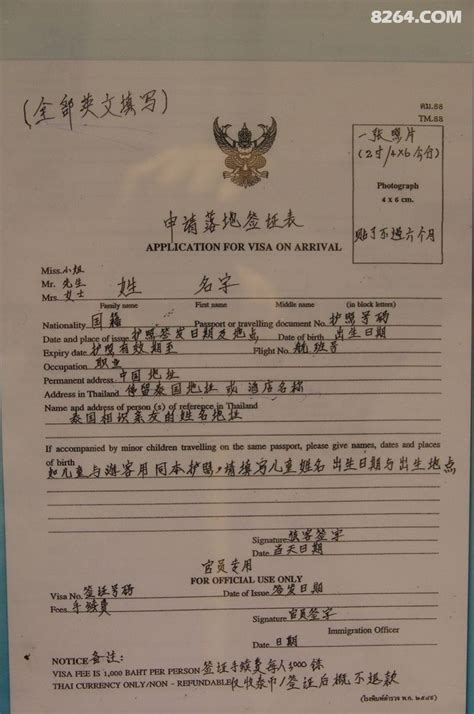 8264.COM
(全部英文填写)
ตม.88
TM.88
一张照片
(2寸/4X6公分)
Photograph
4 x 6 cm.
贴了不过六个月
申请落地签证表
APPLICATION FOR VISA ON ARRIVAL
Miss.小姐
Mr. 先生
Mrs.女士
姓 名字
Family name First name Middle name (in block letters)
Nationality 国籍 Passport or travelling document No. 护照号码
Date and place of issue 护照签发日期及地点 Date of birth 出生日期
Expiry date 护照有效期至 Flight No. 航班号
Occupation 职业
Permanent address 中国地址
Address in Thailand 停留泰国地址 或 酒店名称
Name and address of person (s) of reference in Thailand
泰国相识亲友的姓名地址
If accompanied by minor children travelling on the same passport, please give names, dates and places
of birth
如儿童与游客用同本护照,请填写儿童姓名 出生日期与出生地点
Signature 旅客签字
Date 当天日期
官员专用
FOR OFFICIAL USE ONLY
Visa No. 签证号码 Date of Issue 签发日期
Fees 手续费
Signature 官员签字
Immigration Officer
Date 日期
NOTICE 备注:
VISA FEE IS 1,000 BAHT PER PERSON 签证手续费每人1000铢
THAI CURRENCY ONLY/NON - REFUNDABLE 仅收泰币/签证后概不退款
(โรงพิมพ์ตำรวจ พ.ศ. ๒๕๔๕)